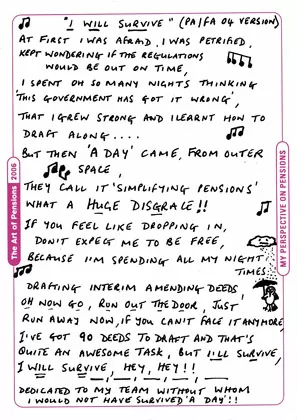 "I WILL SURVIVE" (PA/FA 04 VERSION)
AT FIRST I WAS AFRAID, I WAS PETRIFIED,
KEPT WONDERING IF THE REGULATIONS
WOULD BE OUT ON TIME,
I SPENT OH SO MANY NIGHTS THINKING
'THIS GOVERNMENT HAS GOT IT WRONG',
THAT I GREW STRONG AND I LEARNT HOW TO
DRAFT ALONG....
BUT THEN 'A DAY' CAME, FROM OUTER
SPACE,
THEY CALL IT 'SIMPLIFYING PENSIONS'
WHAT A HUGE DISGRACE!!
IF YOU FEEL LIKE DROPPING IN,
DON'T EXPECT ME TO BE FREE,
BECAUSE I'M SPENDING ALL MY NIGHT
TIMES
DRAFTING INTERIM AMENDING DEEDS
OH NOW GO, RUN OUT THE DOOR, JUST
RUN AWAY NOW, IF YOU CAN'T FACE IT ANYMORE,
I'VE GOT 90 DEEDS TO DRAFT AND THAT'S
QUITE AN AWESOME TASK, BUT I'LL SURVIVE,
I WILL SURVIVE, HEY, HEY!!
DEDICATED TO MY TEAM WITHOUT WHOM
I WOULD NOT HAVE SURVIVED 'A DAY'!!
The Art of Pensions 2006
MY PERSPECTIVE ON PENSIONS